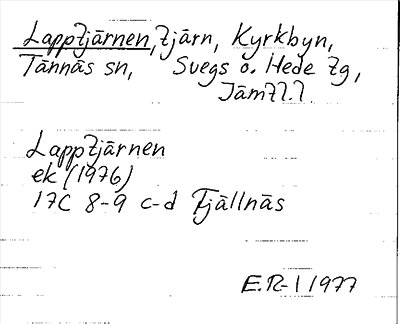 Lapptjärnen, tjärn, Kyrkbyn,
Tännäs sn, Svegs o. Hede tg,
Jämtl.l.
Lapptjärnen
ek (1976)
17C 8-9 c-d Fjällnäs
E.R-l 1977